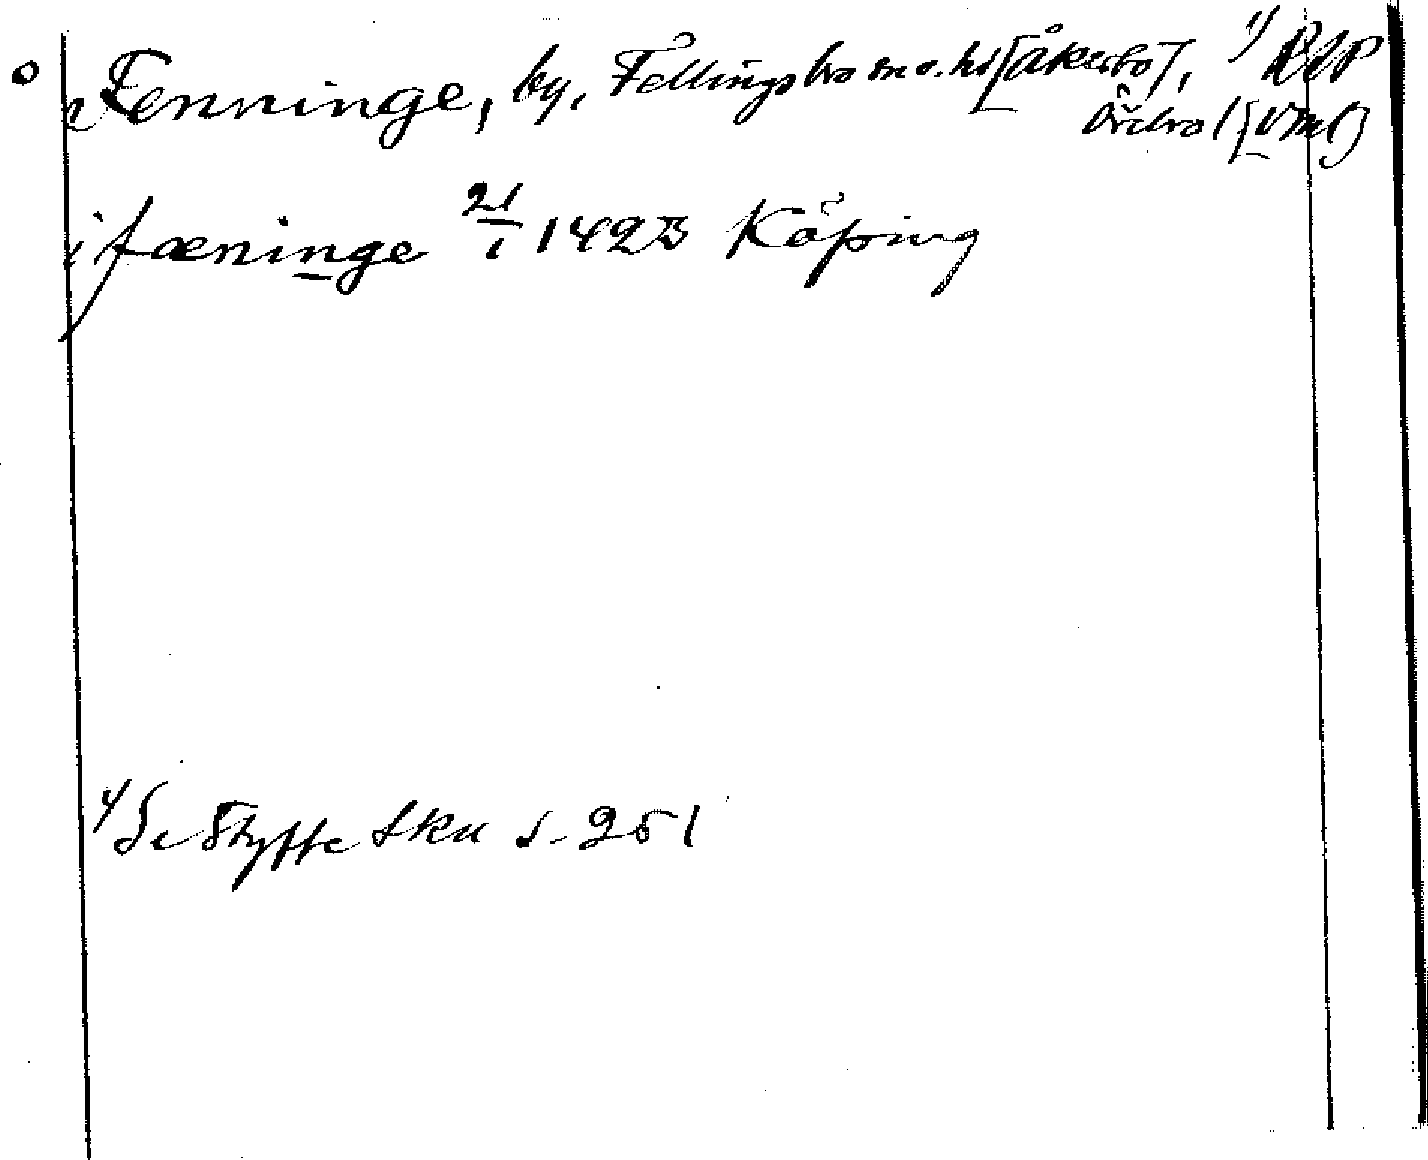 Fenninge, by, Fellingsbro sn o. hd [Åkerbo], 1) RAP
Örebro l [Vml]
i fæninge 21/1 1423 Köping
1) Se Styffe Sku s. 251